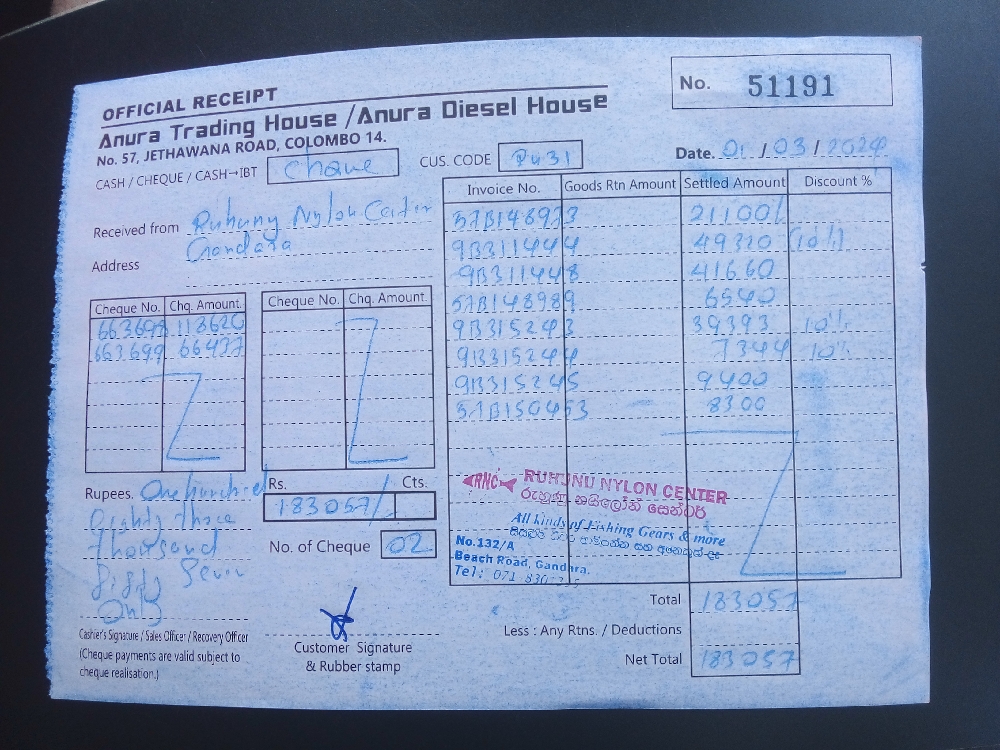 OFFICIAL RECEIPT
No. 51191
Anura Trading House / Anura Diesel House
No. 57, JETHAWANA ROAD, COLOMBO 14.
CASH / CHEQUE / CASH→IBT Cheque
CUS. CODE
Date. 01 / 03 / 2024
Received from Ruhunu Nylon Center
Gandara
Address
Cheque No. Chq. Amount. Cheque No. Chq. Amount.
663698 118620
663699 66437
Invoice No. Goods Rtn Amount Settled Amount Discount %
57B148973 21100/
9B311444 49320 (10%)
9B311448 41660
57B148989 6540
9B315243 39393 10%
9B315244 7344 10%
9B315245 9400
57B150453 8300
RNC RUHUNU NYLON CENTER
රුහුණු නයිලෝන් සෙන්ටර්
All kinds of Fishing Gears & more
No.132/A
Beach Road, Gandara.
Tel: 071 830
Rupees. One hundred
Eighty three
thousand
fifty seven
Only
Rs. Cts.
183057/
No. of Cheque 02
Total 183057
Less : Any Rtns. / Deductions
Net Total 183057
Cashier's Signature / Sales Officer / Recovery Officer
(Cheque payments are valid subject to
cheque realisation.)
Customer Signature
& Rubber stamp